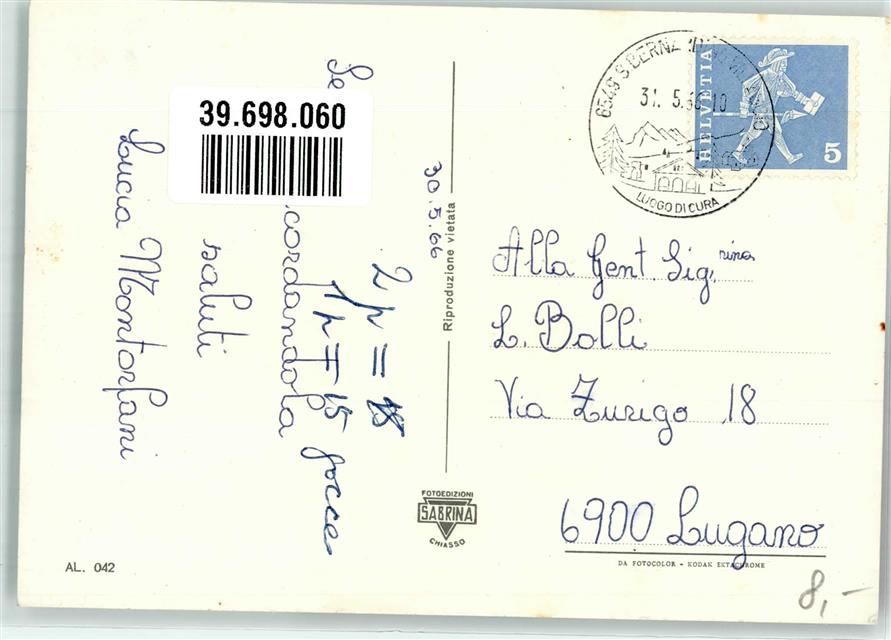 39.698.060
30.5.66
Se
cordandola
saluti
Lucia Montorfani
2 p = 18
1 p = 15 gocce
Riproduzione vietata
FOTOEDIZIONI
SABRINA
CHIASSO
AL. 042
6549 S. BERNARDINO
31. 5. 66 - 10
LUOGO DI CURA
HELVETIA
5
Alla Gent. Sig.rina
L. Bolli
Via Zurigo 18
6900 Lugano
DA FOTOCOLOR - KODAK EKTACHROME
8,-